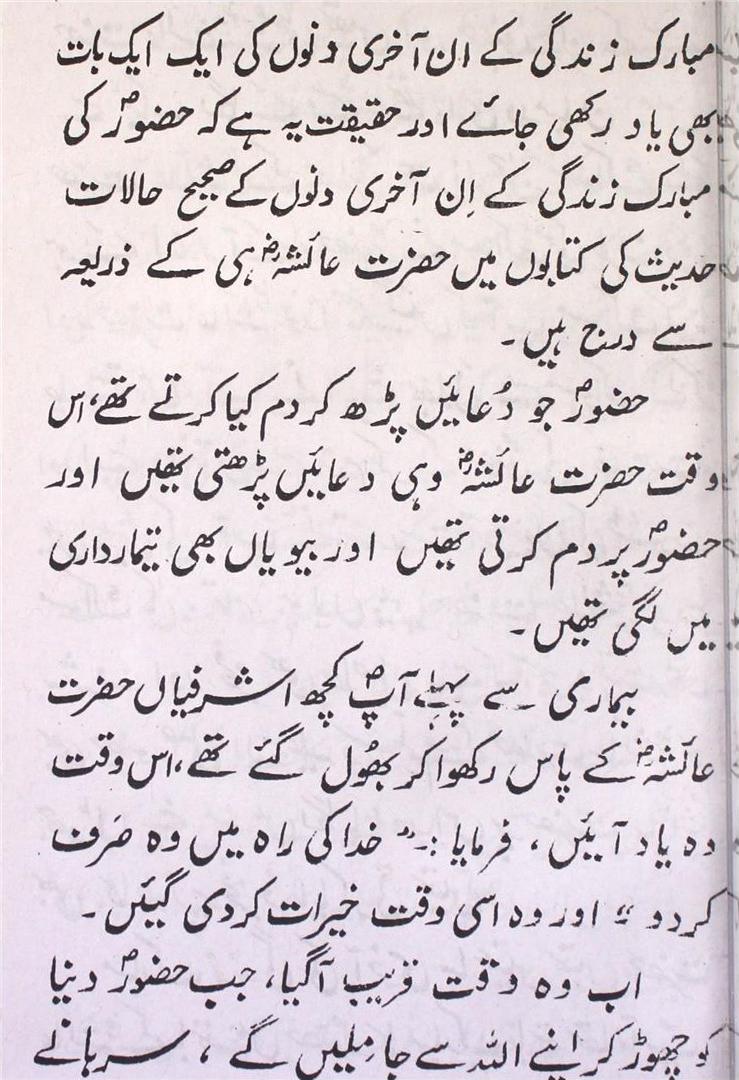 مبارک زندگی کے ان آخری دنوں کی ایک ایک بات
بھی یاد رکھی جائے اور حقیقت یہ ہے کہ حضورؐ کی
مبارک زندگی کے اِن آخری دنوں کے صحیح حالات
حدیث کی کتابوں میں حضرت عائشہؓ ہی کے ذریعہ
سے درج ہیں۔
حضورؐ جو دُعائیں پڑھ کر دم کیا کرتے تھے، اس
وقت حضرت عائشہؓ وہی دعائیں پڑھتی تھیں اور
حضورؐ پر دم کرتی تھیں اور بیویاں بھی تیمارداری
میں لگی تھیں۔
بیماری سے پہلے آپؐ کچھ اشرفیاں حضرت
عائشہؓ کے پاس رکھوا کر بھُول گئے تھے، اس وقت
وہ یاد آئیں، فرمایا :۔" خدا کی راہ میں وہ صَرف
کردو " اور وہ اسی وقت خیرات کردی گیئں۔
اب وہ وقت قریب آگیا، جب حضورؐ دنیا
کو چھوڑ کر اپنے اللہ سے جا مِلیں گے ، سرہانے